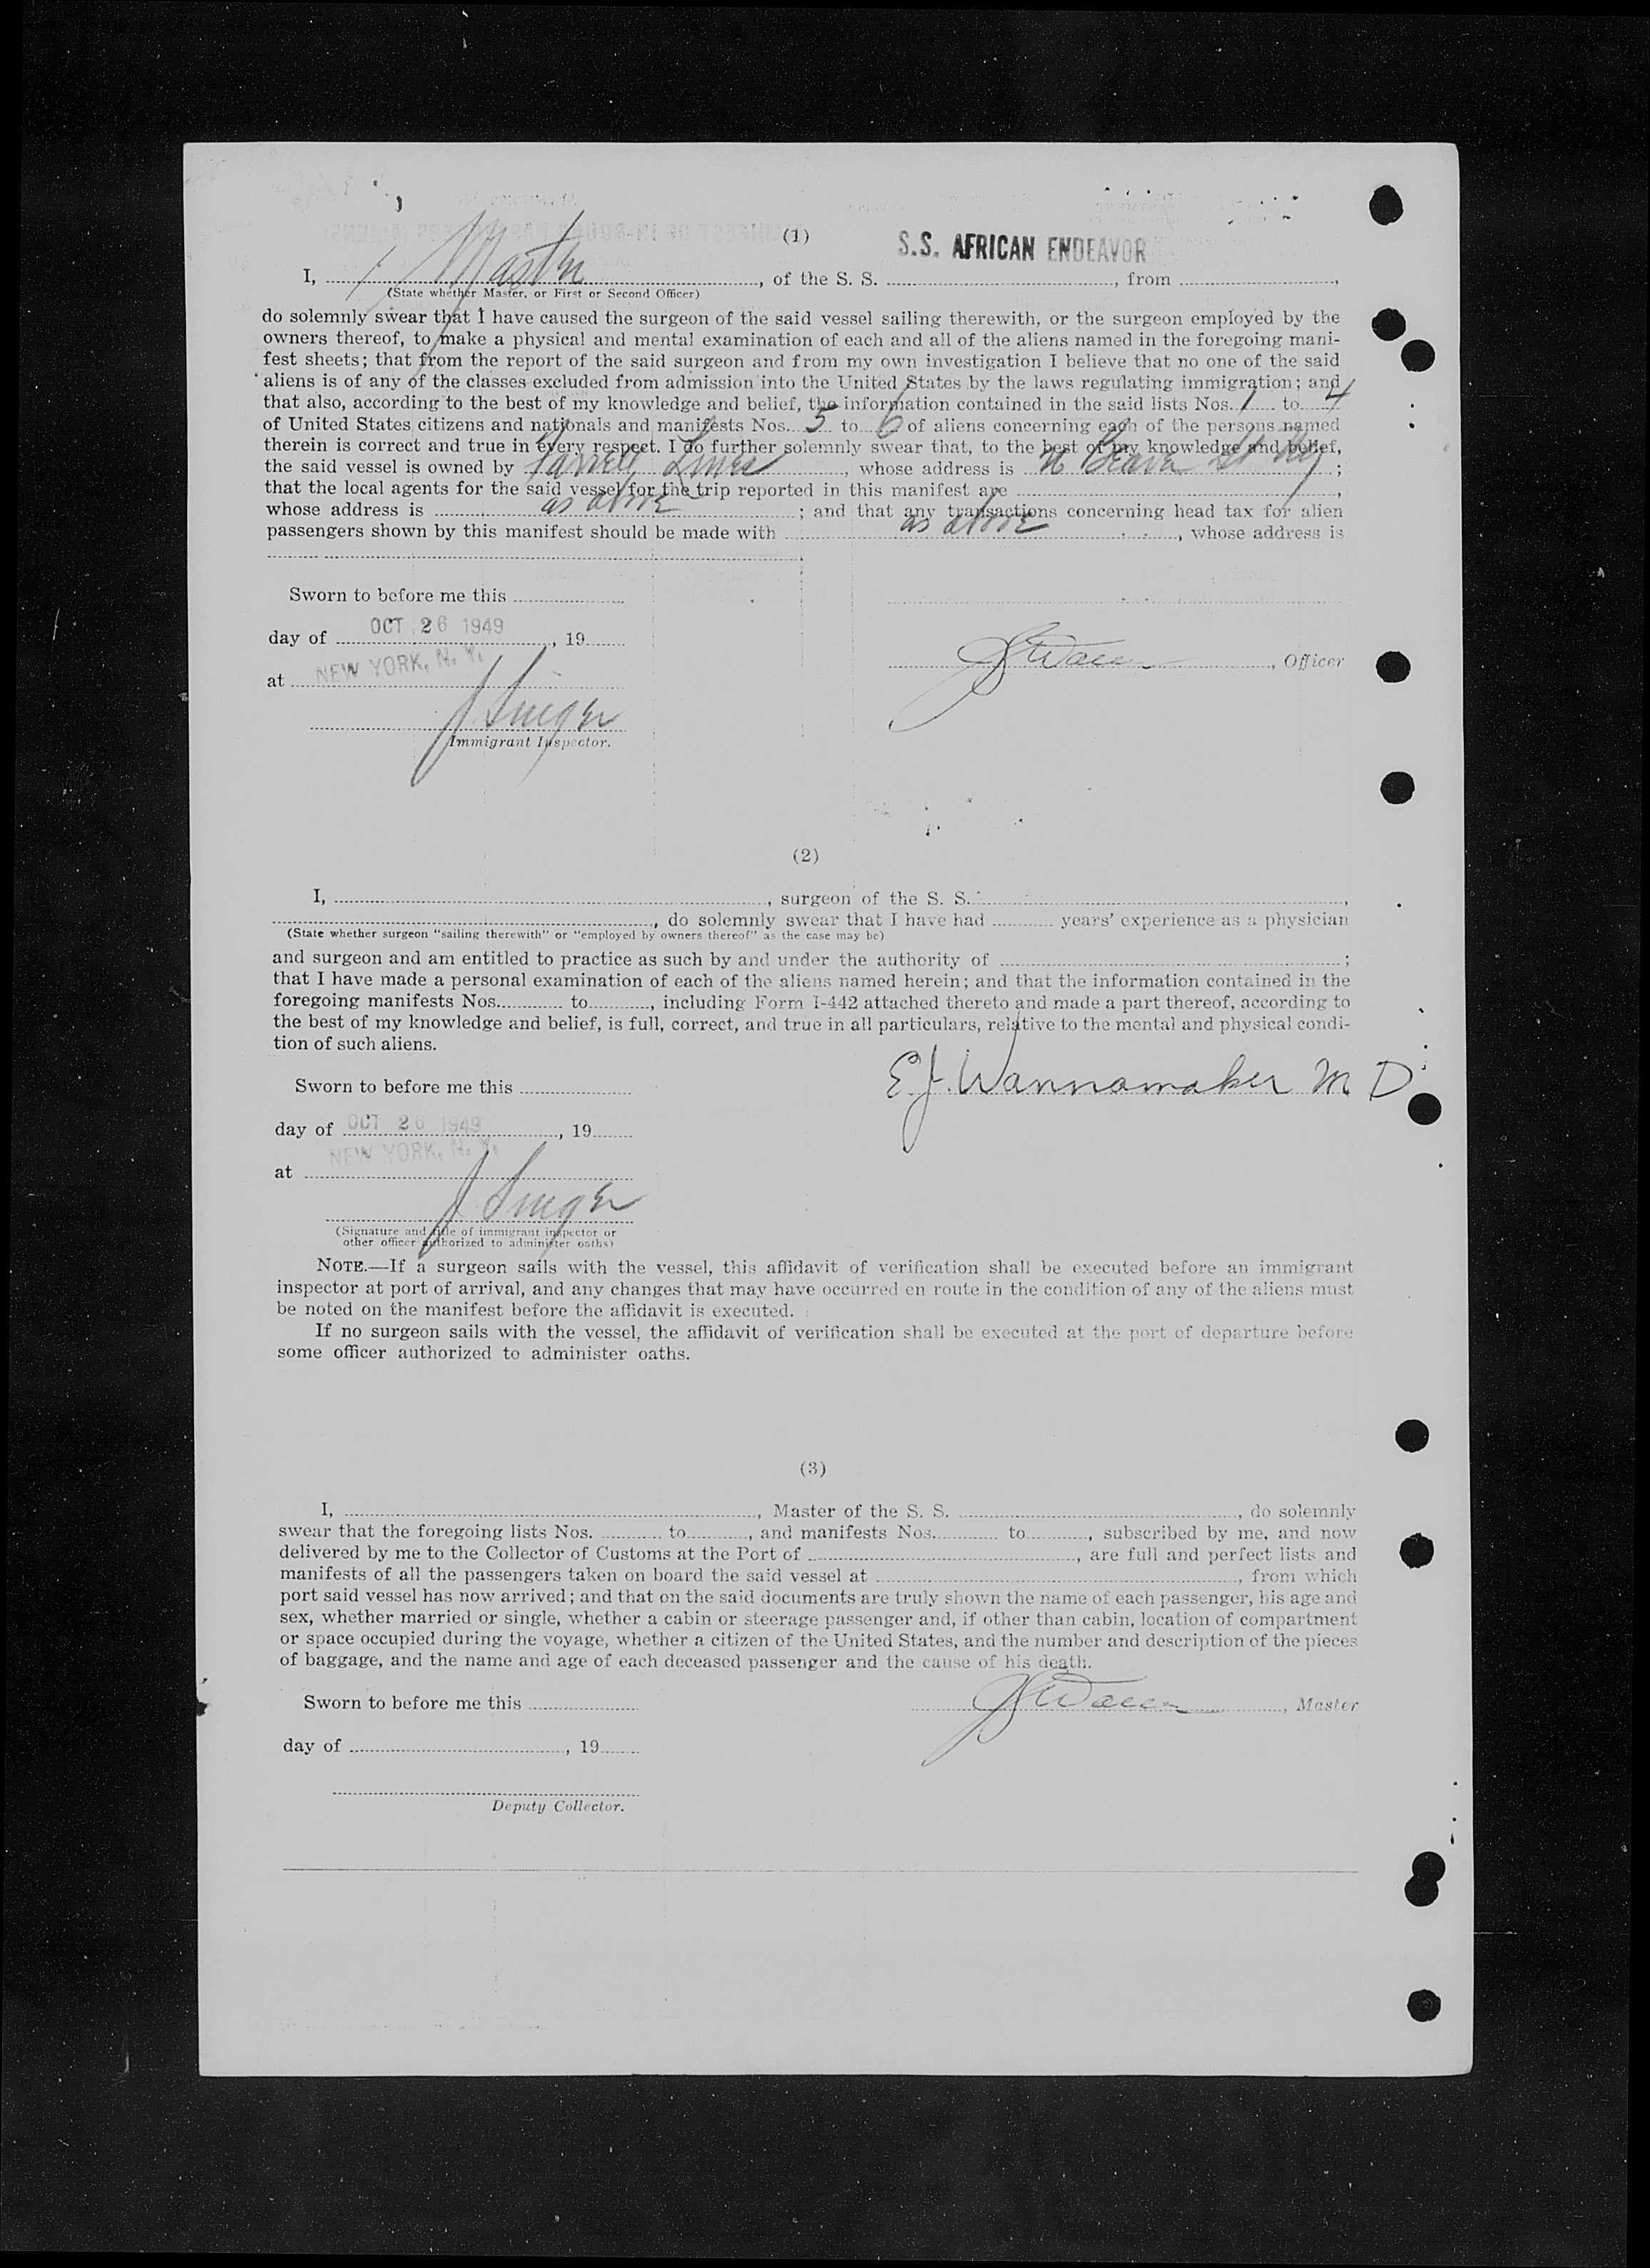 (1)
S.S. AFRICAN ENDEAVOR
I, Master, of the S. S. , from ,
(State whether Master, or First or Second Officer)
do solemnly swear that I have caused the surgeon of the said vessel sailing therewith, or the surgeon employed by the
owners thereof, to make a physical and mental examination of each and all of the aliens named in the foregoing mani-
fest sheets; that from the report of the said surgeon and from my own investigation I believe that no one of the said
aliens is of any of the classes excluded from admission into the United States by the laws regulating immigration; and
that also, according to the best of my knowledge and belief, the information contained in the said lists Nos. 1 to 4
of United States citizens and nationals and manifests Nos. 5 to 6 of aliens concerning each of the persons named
therein is correct and true in every respect. I do further solemnly swear that, to the best of my knowledge and belief,
the said vessel is owned by Farrell Lines, whose address is Beaver St NY;
that the local agents for the said vessel for the trip reported in this manifest are ,
whose address is as above; and that any transactions concerning head tax for alien
passengers shown by this manifest should be made with as above, whose address is
Sworn to before me this
day of OCT 26 1949, 19
, Officer
at NEW YORK, N. Y.
J Singer
Immigrant Inspector.
(2)
I, , surgeon of the S. S. ,
, do solemnly swear that I have had years' experience as a physician
(State whether surgeon "sailing therewith" or "employed by owners thereof" as the case may be)
and surgeon and am entitled to practice as such by and under the authority of ;
that I have made a personal examination of each of the aliens named herein; and that the information contained in the
foregoing manifests Nos. to , including Form I-442 attached thereto and made a part thereof, according to
the best of my knowledge and belief, is full, correct, and true in all particulars, relative to the mental and physical condi-
tion of such aliens.
E.J. Wannamaker M D
Sworn to before me this
day of OCT 26 1949, 19
at NEW YORK, N. Y.
J Singer
(Signature and title of immigrant inspector or
other officer authorized to administer oaths)
NOTE.—If a surgeon sails with the vessel, this affidavit of verification shall be executed before an immigrant
inspector at port of arrival, and any changes that may have occurred en route in the condition of any of the aliens must
be noted on the manifest before the affidavit is executed.
If no surgeon sails with the vessel, the affidavit of verification shall be executed at the port of departure before
some officer authorized to administer oaths.
(3)
I, , Master of the S. S. , do solemnly
swear that the foregoing lists Nos. to , and manifests Nos. to , subscribed by me, and now
delivered by me to the Collector of Customs at the Port of , are full and perfect lists and
manifests of all the passengers taken on board the said vessel at , from which
port said vessel has now arrived; and that on the said documents are truly shown the name of each passenger, his age and
sex, whether married or single, whether a cabin or steerage passenger and, if other than cabin, location of compartment
or space occupied during the voyage, whether a citizen of the United States, and the number and description of the pieces
of baggage, and the name and age of each deceased passenger and the cause of his death.
Sworn to before me this
, Master
day of , 19
Deputy Collector.